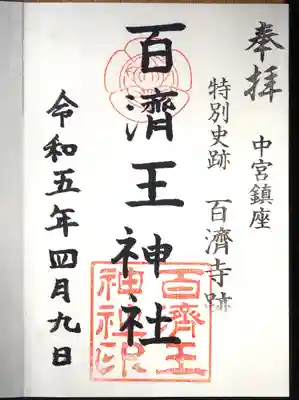 奉拝
中宮鎮座
特別史跡 百濟寺跡
百濟王神社
令和五年四月九日
百濟王
神社印